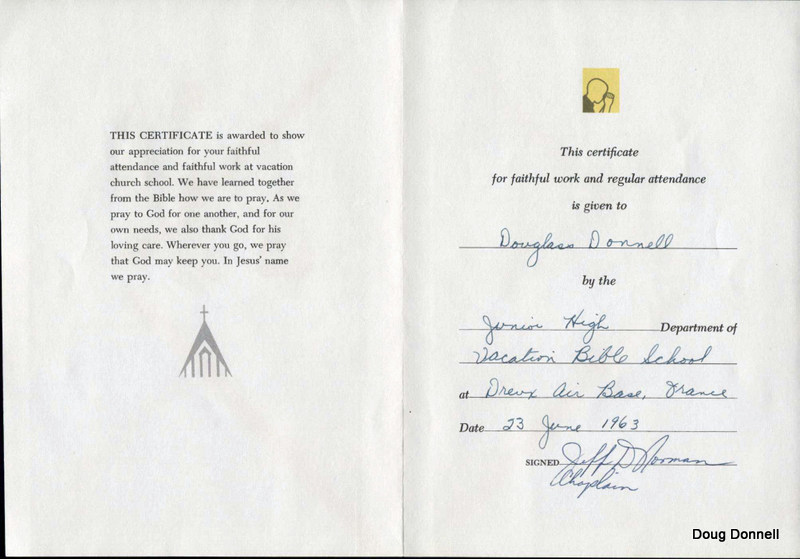 THIS CERTIFICATE is awarded to show
our appreciation for your faithful
attendance and faithful work at vacation
church school. We have learned together
from the Bible how we are to pray, As we
pray to God for one another, and for our
own needs, we also thank God for his
loving care. Wherever you go, we pray
that God may keep you. In Jesus' name
we pray.
This certificate
for faithful work and regular attendance
is given to
Douglass Donnell
by the
Junior High Department of
Vacation Bible School
at Dreux Air Base, France
Date 23 June 1963
SIGNED Jeff D Norman
Chaplain
Doug Donnell